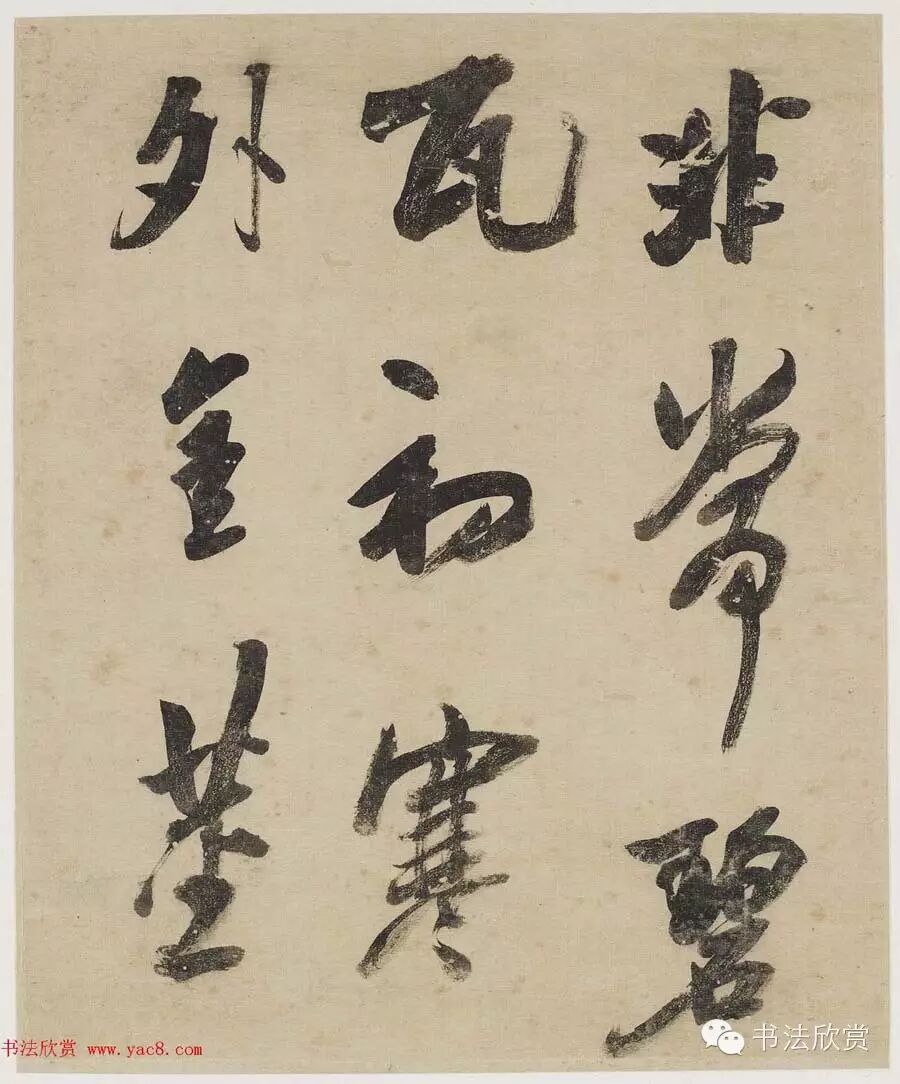 非常碧
瓦初寒
外金茎
书法欣赏 www.yac8.com
书法欣赏